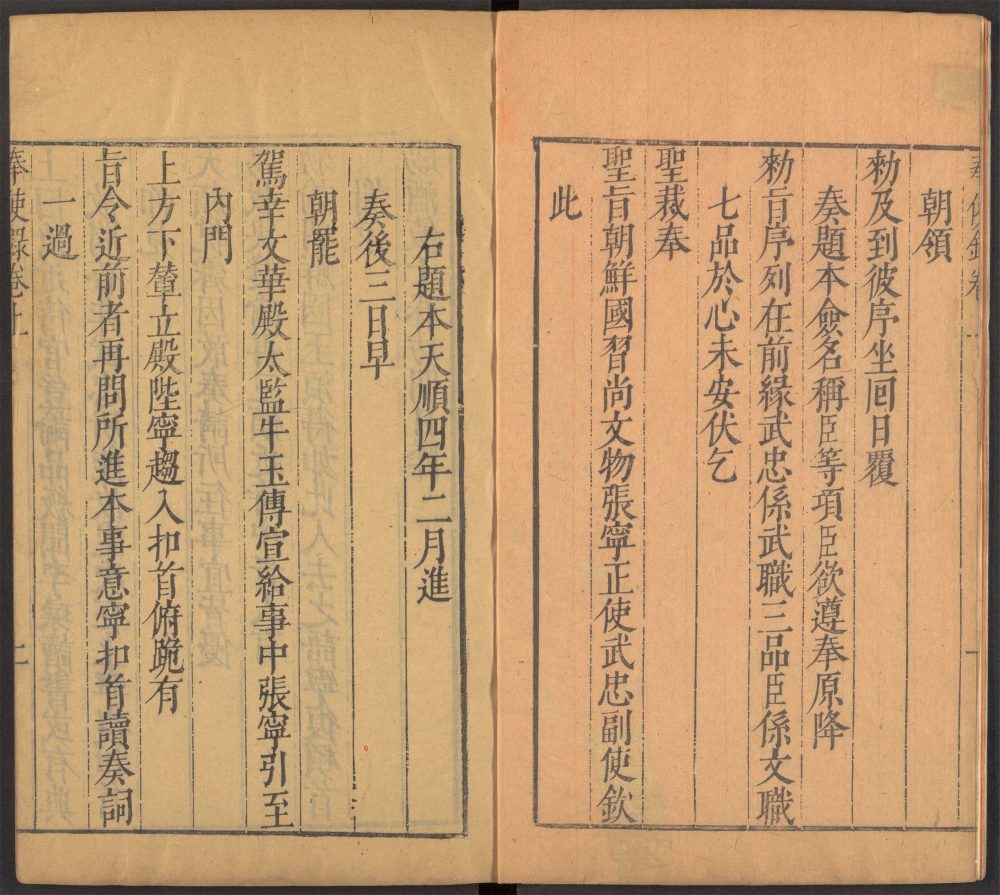 奉使錄卷上
朝領
勑及到彼序坐囘日覆
奏題本僉名稱臣等項臣欲遵奉原降
勑旨序列在前緣武忠係武職三品臣係文職
七品於心未安伏乞
聖裁奉
聖旨朝鮮國習尚文物張寧正使武忠副使欽
此
右題本天順四年二月進
奏後三日早
朝罷
駕幸文華殿太監牛玉傳宣給事中張寧引至
內門
上方下輦立殿陛寧趨入扣首俯跪有
旨令近前者再問所進本事意寧扣首讀奏詞
一過
奉使錄卷上 二